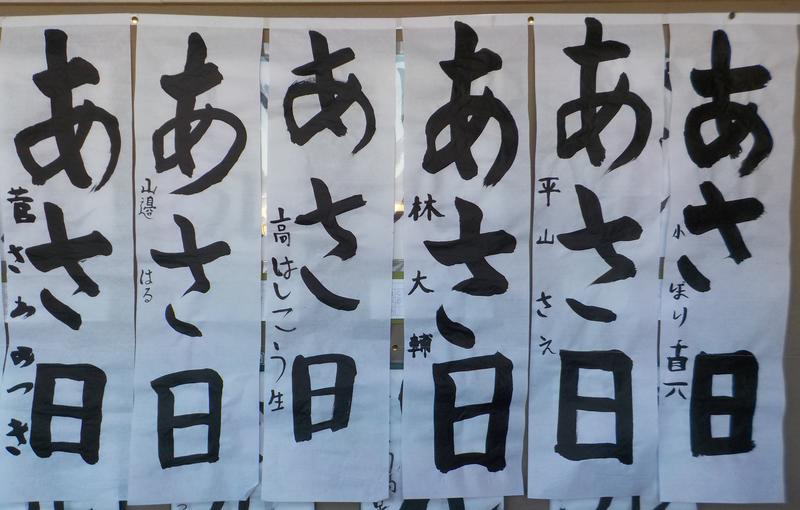 あさ日
小
あさ日
平山さえ
あさ日
林大輔
あさ日
高はしこう生
あさ日
山邉はる
あさ日
菅さわみつき